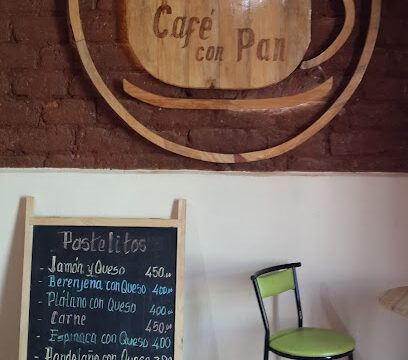 Café
con Pan
Pastelitos
- Jamón y Queso 450.00
- Berenjena con Queso 400.00
- Plátano con Queso 400.00
- Carne 450.00
- Espinaca con Queso 400
con Queso